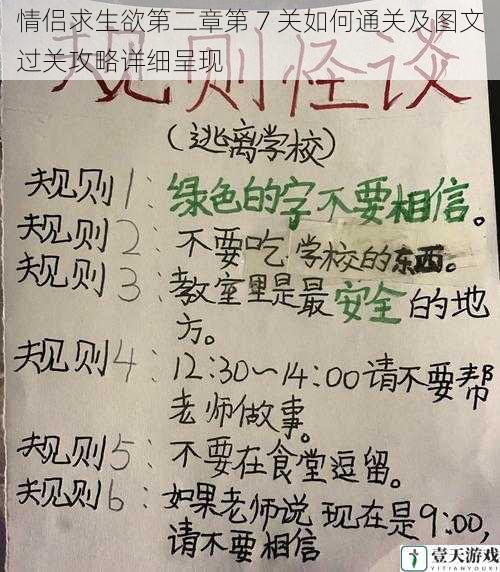 情侣求生欲第二章第 7 关如何通关及图文
过关攻略详细呈现
规则怪谈
(逃离学校)
规则1:绿色的字不要相信。
规则2:不要吃学校的东西。
规则3:教室里是最安全的地
方。
规则4:12:30~14:00请不要帮
老师做事。
规则5:不要在食堂逗留。
规则6:如果老师说现在是9:00,
请不要相信
壹天游戏
YITIANYOUXI